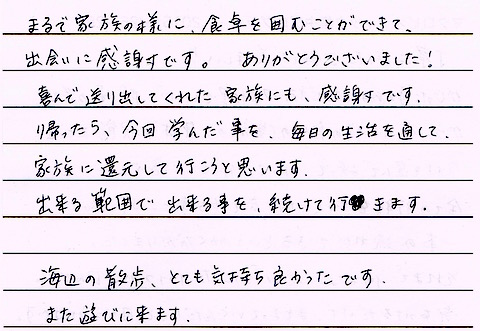 まるで家族の様に、食卓を囲むことができて、
出会いに感謝です。 ありがとうございました！
喜んで送り出してくれた家族にも、感謝です。
帰ったら、今回学んだ事を、毎日の生活を通して、
家族に還元して行こうと思います。
出来る範囲で出来る事を、続けて行きます。
海辺の散歩、とても気持ち良かったです。
また遊びに来ます。